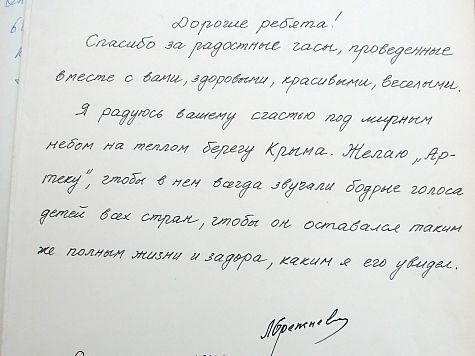 Дорогие ребята!
Спасибо за радостные часы, проведенные
вместе с вами, здоровыми, красивыми, веселыми.
Я радуюсь вашему счастью под мирным
небом на теплом берегу Крыма. Желаю „Ар-
теку", чтобы в нем всегда звучали бодрые голоса
детей всех стран, чтобы он оставался таким
же полным жизни и задора, каким я его увидел.
ЛБрежнев